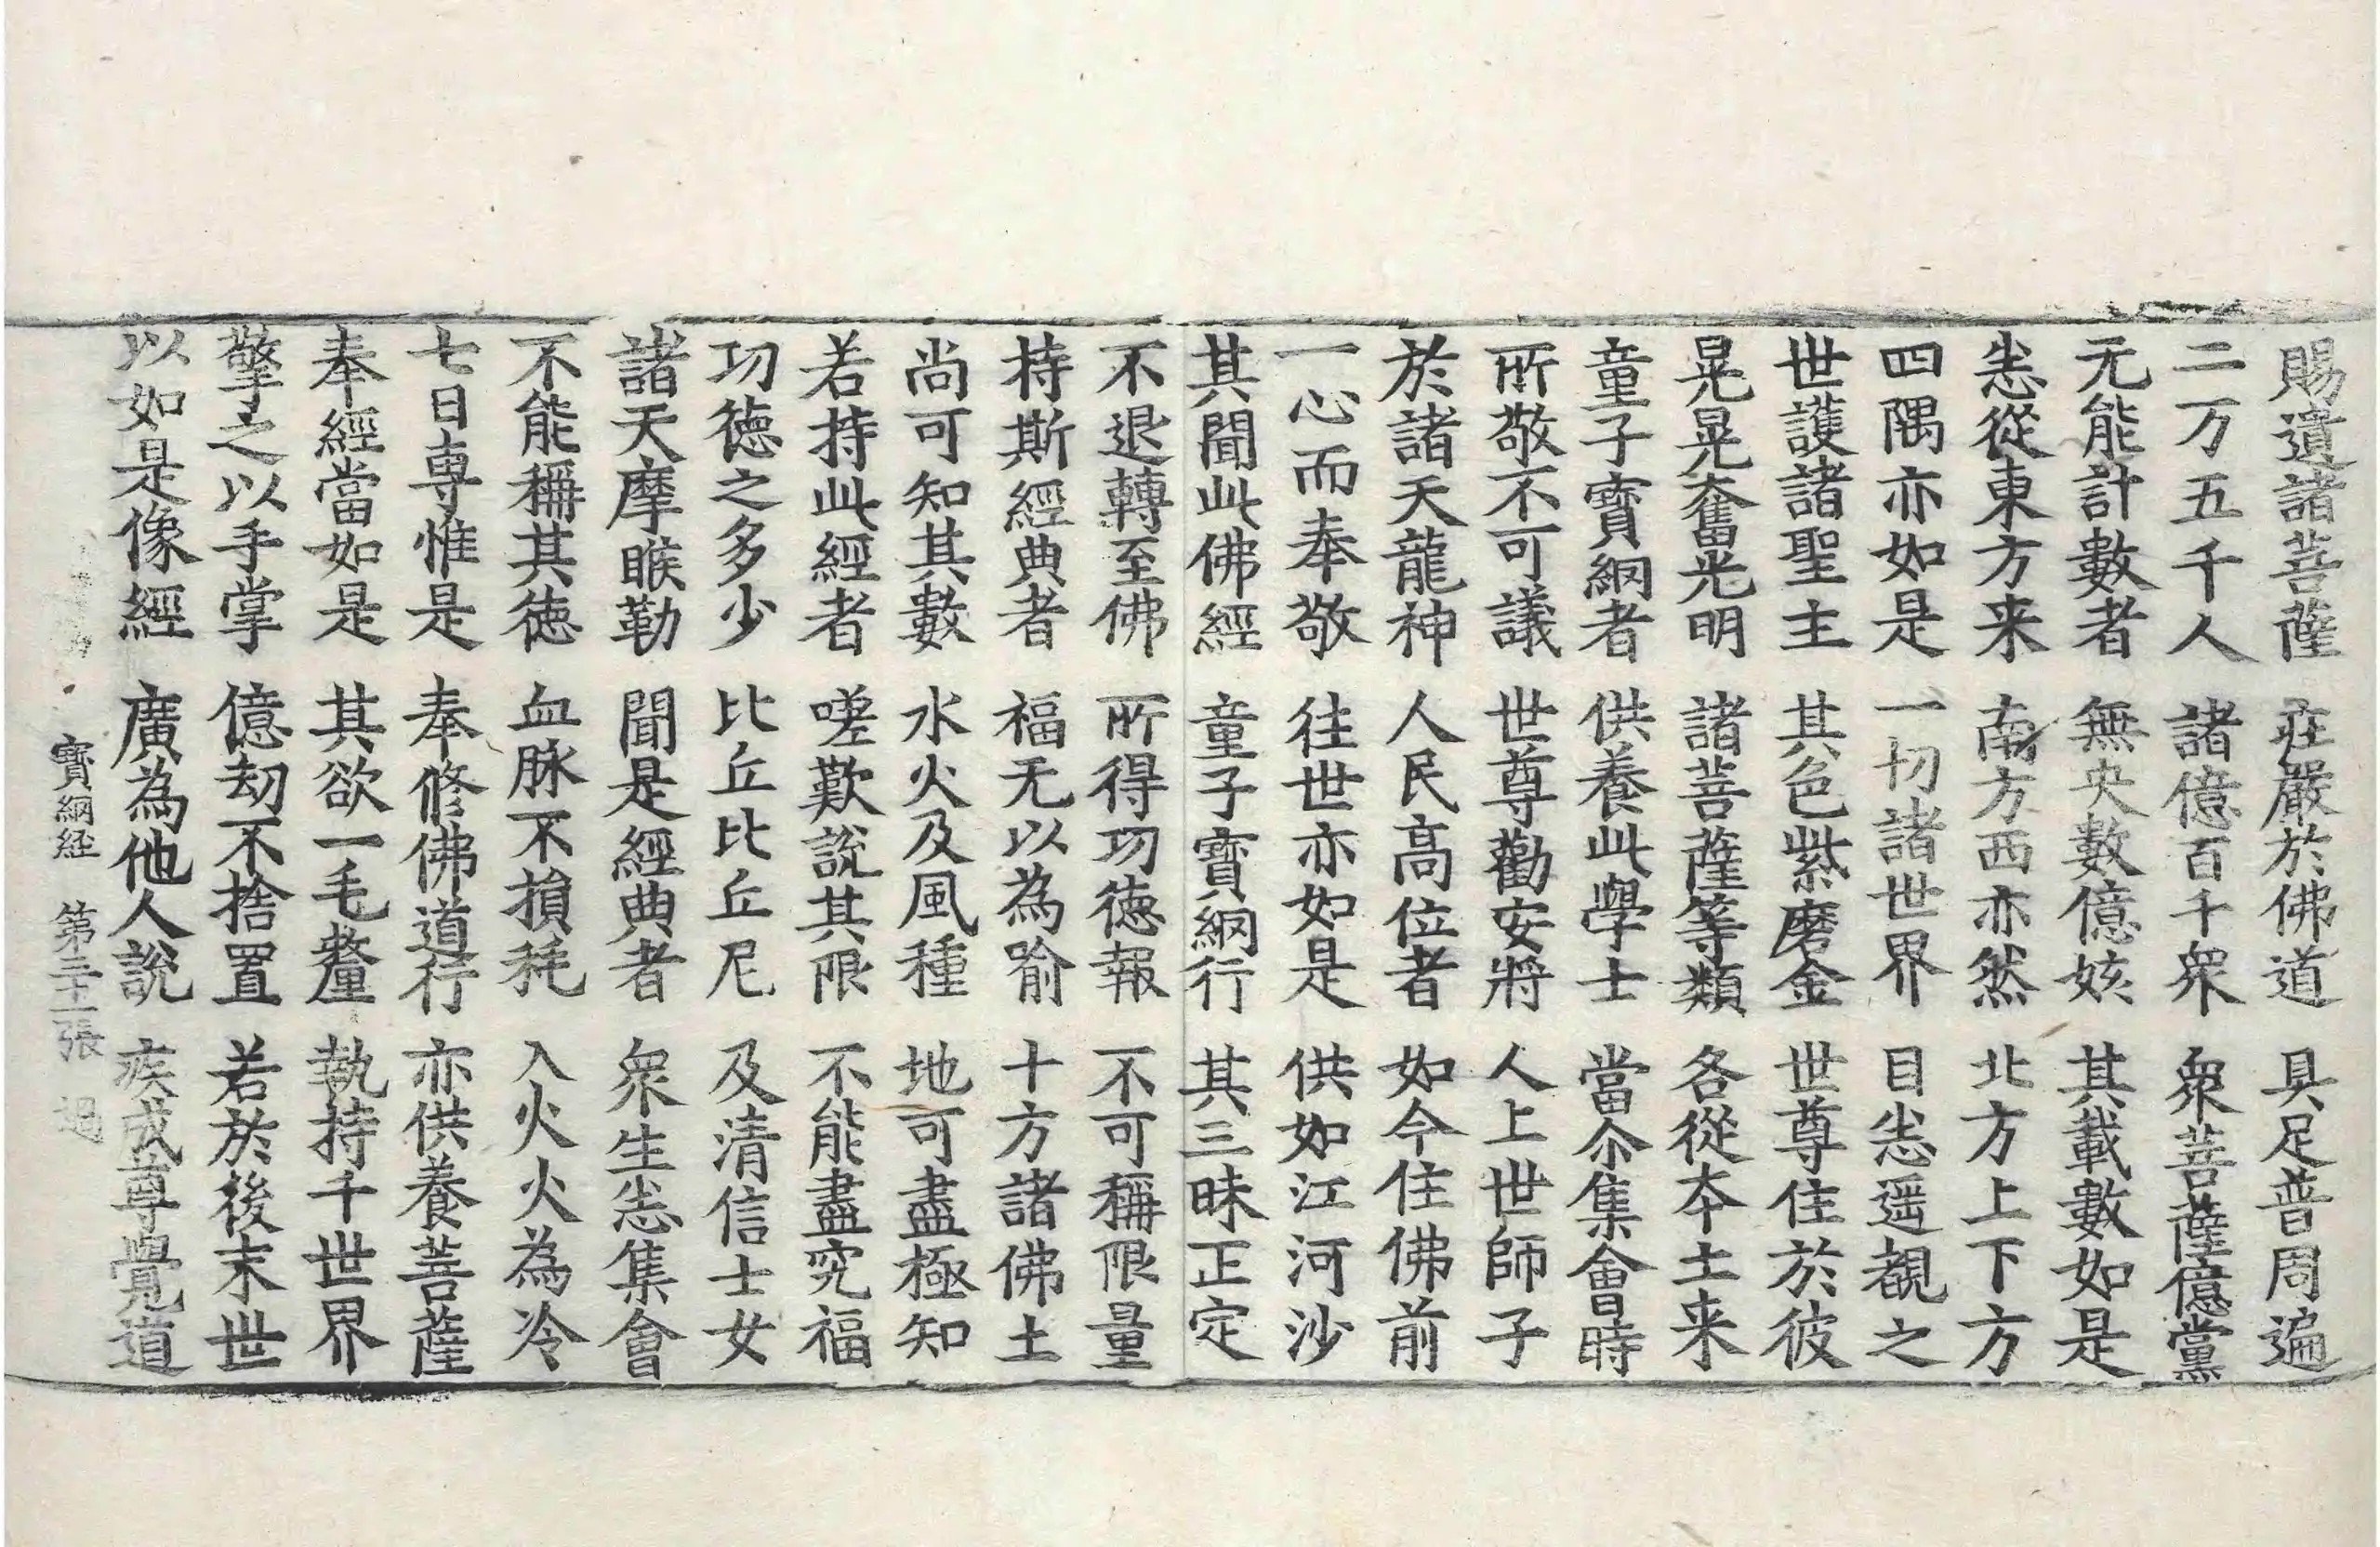 賜遺諸菩薩 莊嚴於佛道 具足普周遍
二万五千人 諸億百千衆 衆菩薩億黨
无能計數者 無央數億姟 其載數如是
悉從東方来 南方西亦然 北方上下方
四隅亦如是 一切諸世界 目悉遥覩之
世護諸聖主 其色紫磨金 世尊住於彼
晃晃奮光明 諸菩薩等類 各從本土来
童子寳網者 供養此學士 當尒集會時
所敬不可議 世尊勸安將 人上世師子
於諸天龍神 人民高位者 如今住佛前
一心而奉敬 往世亦如是 供如江河沙
其聞此佛經 童子寳網行 其三昧正定
不退轉至佛 所得功徳報 不可稱限量
持斯經典者 福无以為喻 十方諸佛土
尚可知其數 水火及風種 地可盡極知
若持此經者 嗟歎說其限 不能盡究福
功徳之多少 比丘比丘尼 及清信士女
諸天摩睺勒 聞是經典者 衆生悉集會
不能稱其徳 血脉不損耗 入火火為冷
七日專惟是 奉修佛道行 亦供養菩薩
奉經當如是 其欲一毛釐 執持千世界
擎之以手掌 億劫不捨置 若於後末世
以如是像經 廣為他人說 疾成尊覺道
寳網経 第二十一張 過